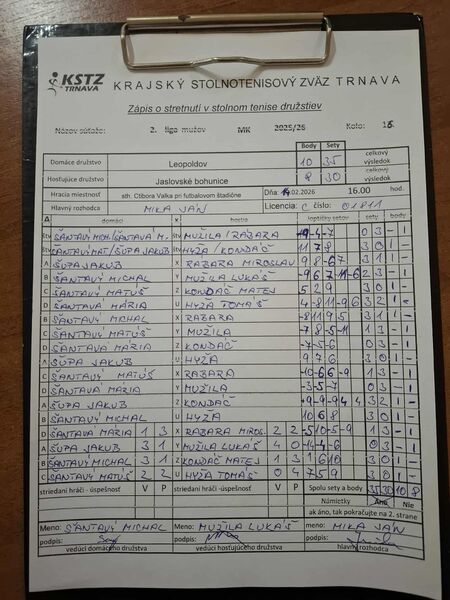 KSTZ TRNAVA KRAJSKÝ STOLNOTENISOVÝ ZVÄZ TRNAVA
Zápis o stretnutí v stolnom tenise družstiev
Názov súťaže: 2. liga mužov MK 2025/26 Kolo: 16.
Body Sety
Domáce družstvo Leopoldov 10 35 celkový výsledok
Hosťujúce družstvo Jaslovské bohunice 8 30 celkový výsledok
Hracia miestnosť sth. Ctibora Valka pri futbalovom štadióne Dňa: 14.02.2026 16.00 hod.
Hlavný rozhodca MIKA JÁN Licencia: C číslo: 01811
domáci x hostia loptičky setov sety body
štv ŠANTAVÝ MICH/ŠANTAVÁ M. štv MUŽILA/RABARA 0 3 - 1
štv ŠANTAVÝ MAT/ŠUPA JAKUB štv HYŽA/KONDÁČ 11 7 8 3 0 1 -
A ŠUPA JAKUB X RABARA MIROSLAV 9 8 -6 7 3 1 1 -
B ŠANTAVÝ MICHAL Y MUŽILA LUKÁŠ -9 6 7 -11 -6 2 3 - 1
C ŠANTAVÝ MATÚŠ Z KONDÁČ MATEJ 5 2 9 3 0 1 -
D ŠANTAVÁ MÁRIA U HYŽA TOMÁŠ 3 2 1 -
B ŠANTAVÝ MICHAL X RABARA 3 1 1 -
C ŠANTAVÝ MATÚŠ Y MUŽILA -7 8 -5 -11 1 3 - 1
D ŠANTAVÁ MÁRIA Z KONDÁČ -7 -5 -6 0 3 - 1
A ŠUPA JAKUB U HYŽA 9 7 6 3 0 1 -
C ŠANTAVÝ MATÚŠ X RABARA -10 -6 6 -9 1 3 - 1
D ŠANTAVÁ MÁRIA Y MUŽILA -3 -5 -7 0 3 - 1
A ŠUPA JAKUB Z KONDÁČ 3 2 1 -
B ŠANTAVÝ MICHAL U HYŽA 10 6 8 3 0 1 -
D ŠANTAVÁ MÁRIA 1 3 X RABARA MIROS. 2 2 -5 10 -5 -9 1 3 - 1
A ŠUPA JAKUB 3 1 Y MUŽILA LUKÁŠ 4 0 0 3 - 1
B ŠANTAVÝ MICHAL 3 1 Z KONDÁČ MATEJ 1 3 1 6 10 3 0 1 -
C ŠANTAVÝ MATÚŠ 2 2 U HYŽA TOMÁŠ 0 4 7 5 9 3 0 1 -
striedaní hráči - úspešnosť V P striedaní hráči - úspešnosť V P Spolu sety a body 35 30 10 8
Námietky Áno Nie
ak áno, tak pokračujte na 2. strane
Meno: ŠANTAVÝ MICHAL Meno: MUŽILA LUKÁŠ Meno: MIKA JÁN
podpis: podpis: podpis:
vedúci domáceho družstva vedúci hosťujúceho družstva hlavný rozhodca